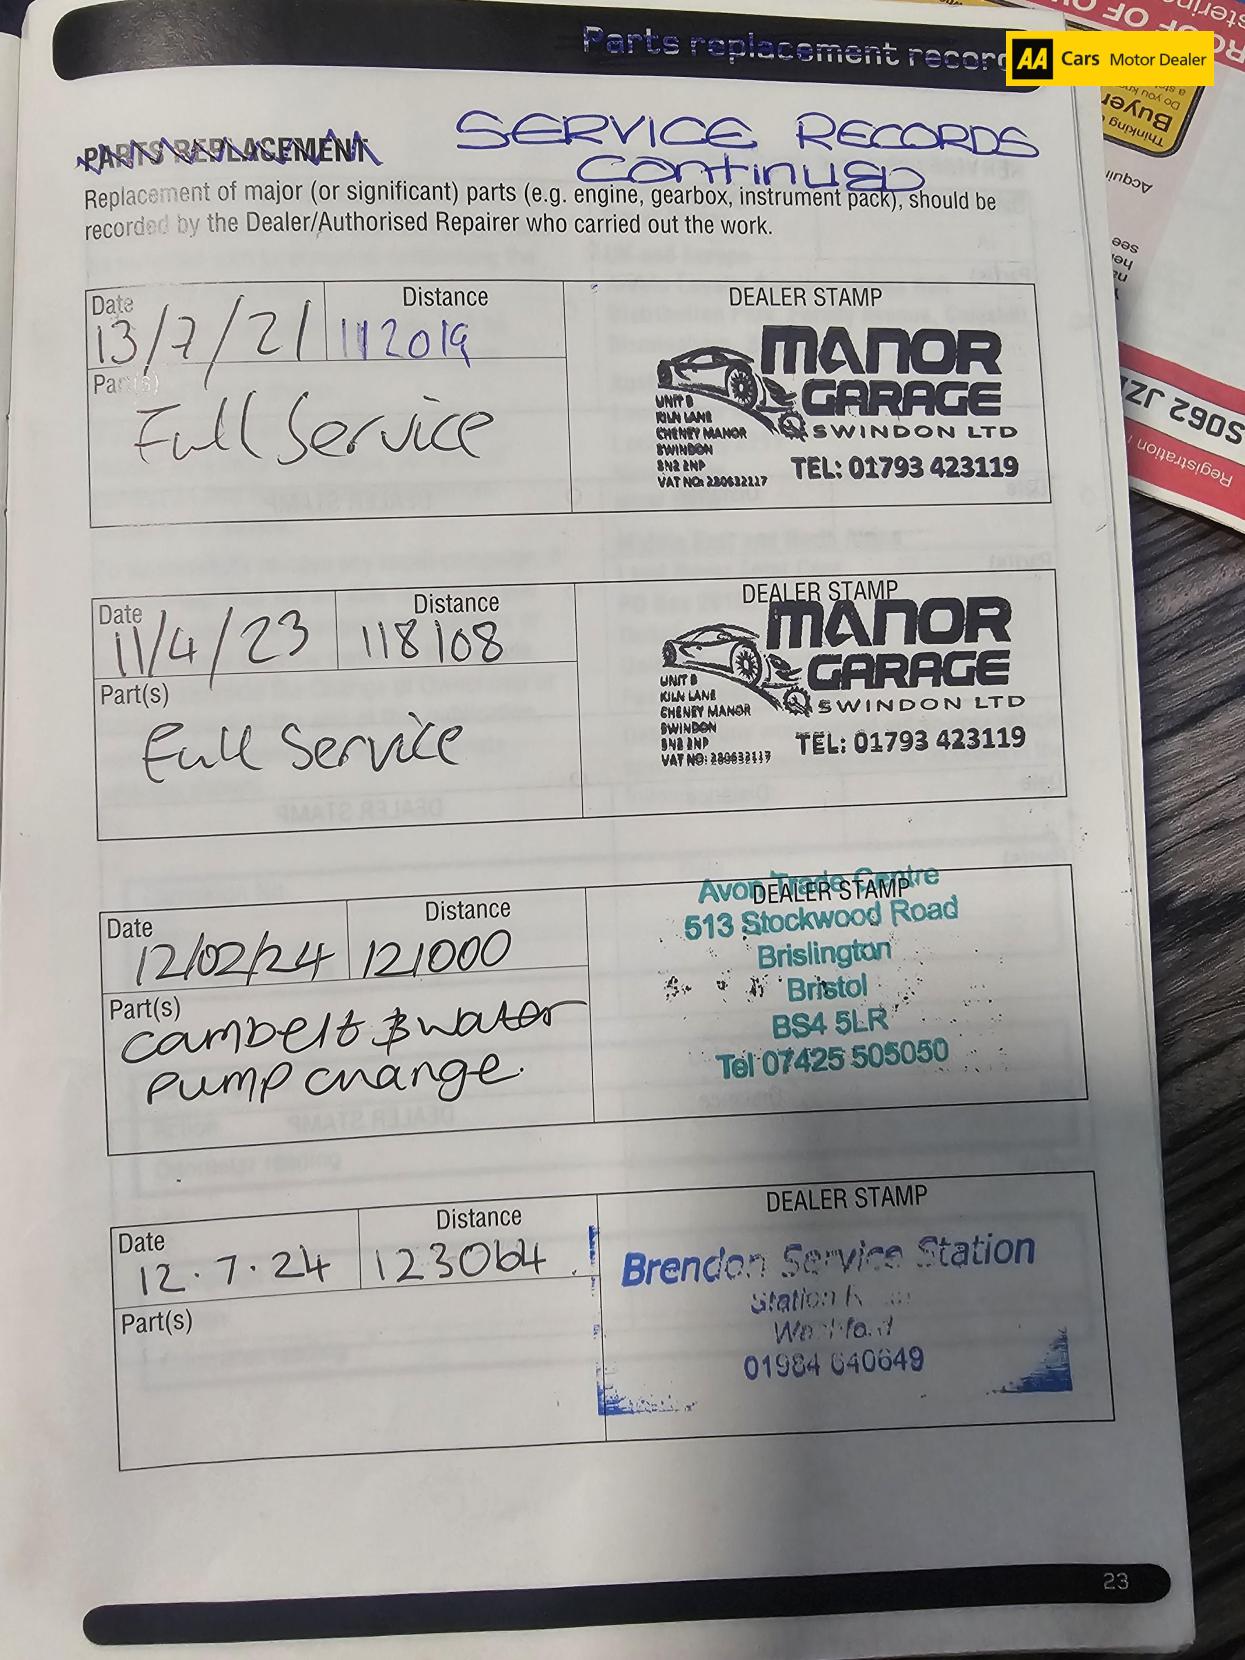 Parts replacement recor
AA Cars Motor Dealer
PARTS REPLACEMENT
SERVICE RECORDS
CONTINUED
Replacement of major (or significant) parts (e.g. engine, gearbox, instrument pack), should be
recorded by the Dealer/Authorised Repairer who carried out the work.
Date
Distance
DEALER STAMP
13/7/21
112019
Part(s)
Full Service
MANOR
GARAGE
SWINDON LTD
UNIT B
KILN LANE
CHENEY MANOR
SWINDON
SN2 2NP
VAT NO: 280632117
TEL: 01793 423119
Date
Distance
DEALER STAMP
11/4/23
118108
Part(s)
Full Service
MANOR
GARAGE
SWINDON LTD
UNIT B
KILN LANE
CHENEY MANOR
SWINDON
SN2 2NP
VAT NO: 280632117
TEL: 01793 423119
Date
Distance
DEALER STAMP
12/02/24
121000
Part(s)
cambelt & water
pump change.
Avon Trade Centre
513 Stockwood Road
Brislington
Bristol
BS4 5LR
Tel 07425 505050
Date
Distance
DEALER STAMP
12.7.24
123064
Part(s)
Brendon Service Station
Station
01984 640649
23
ROOF OF
Buyer
Thinking
Do you
Acquir
see
S062 JZ
Registration